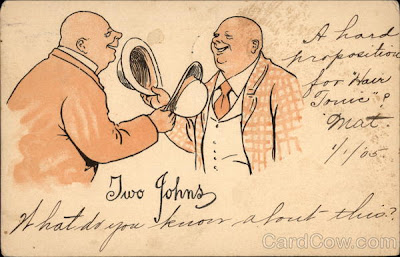 A hard
proposition
for "Hair
Tonic" &
Mat.
1/1/05.
Two Johns
What do you know about this?
CardCow.com